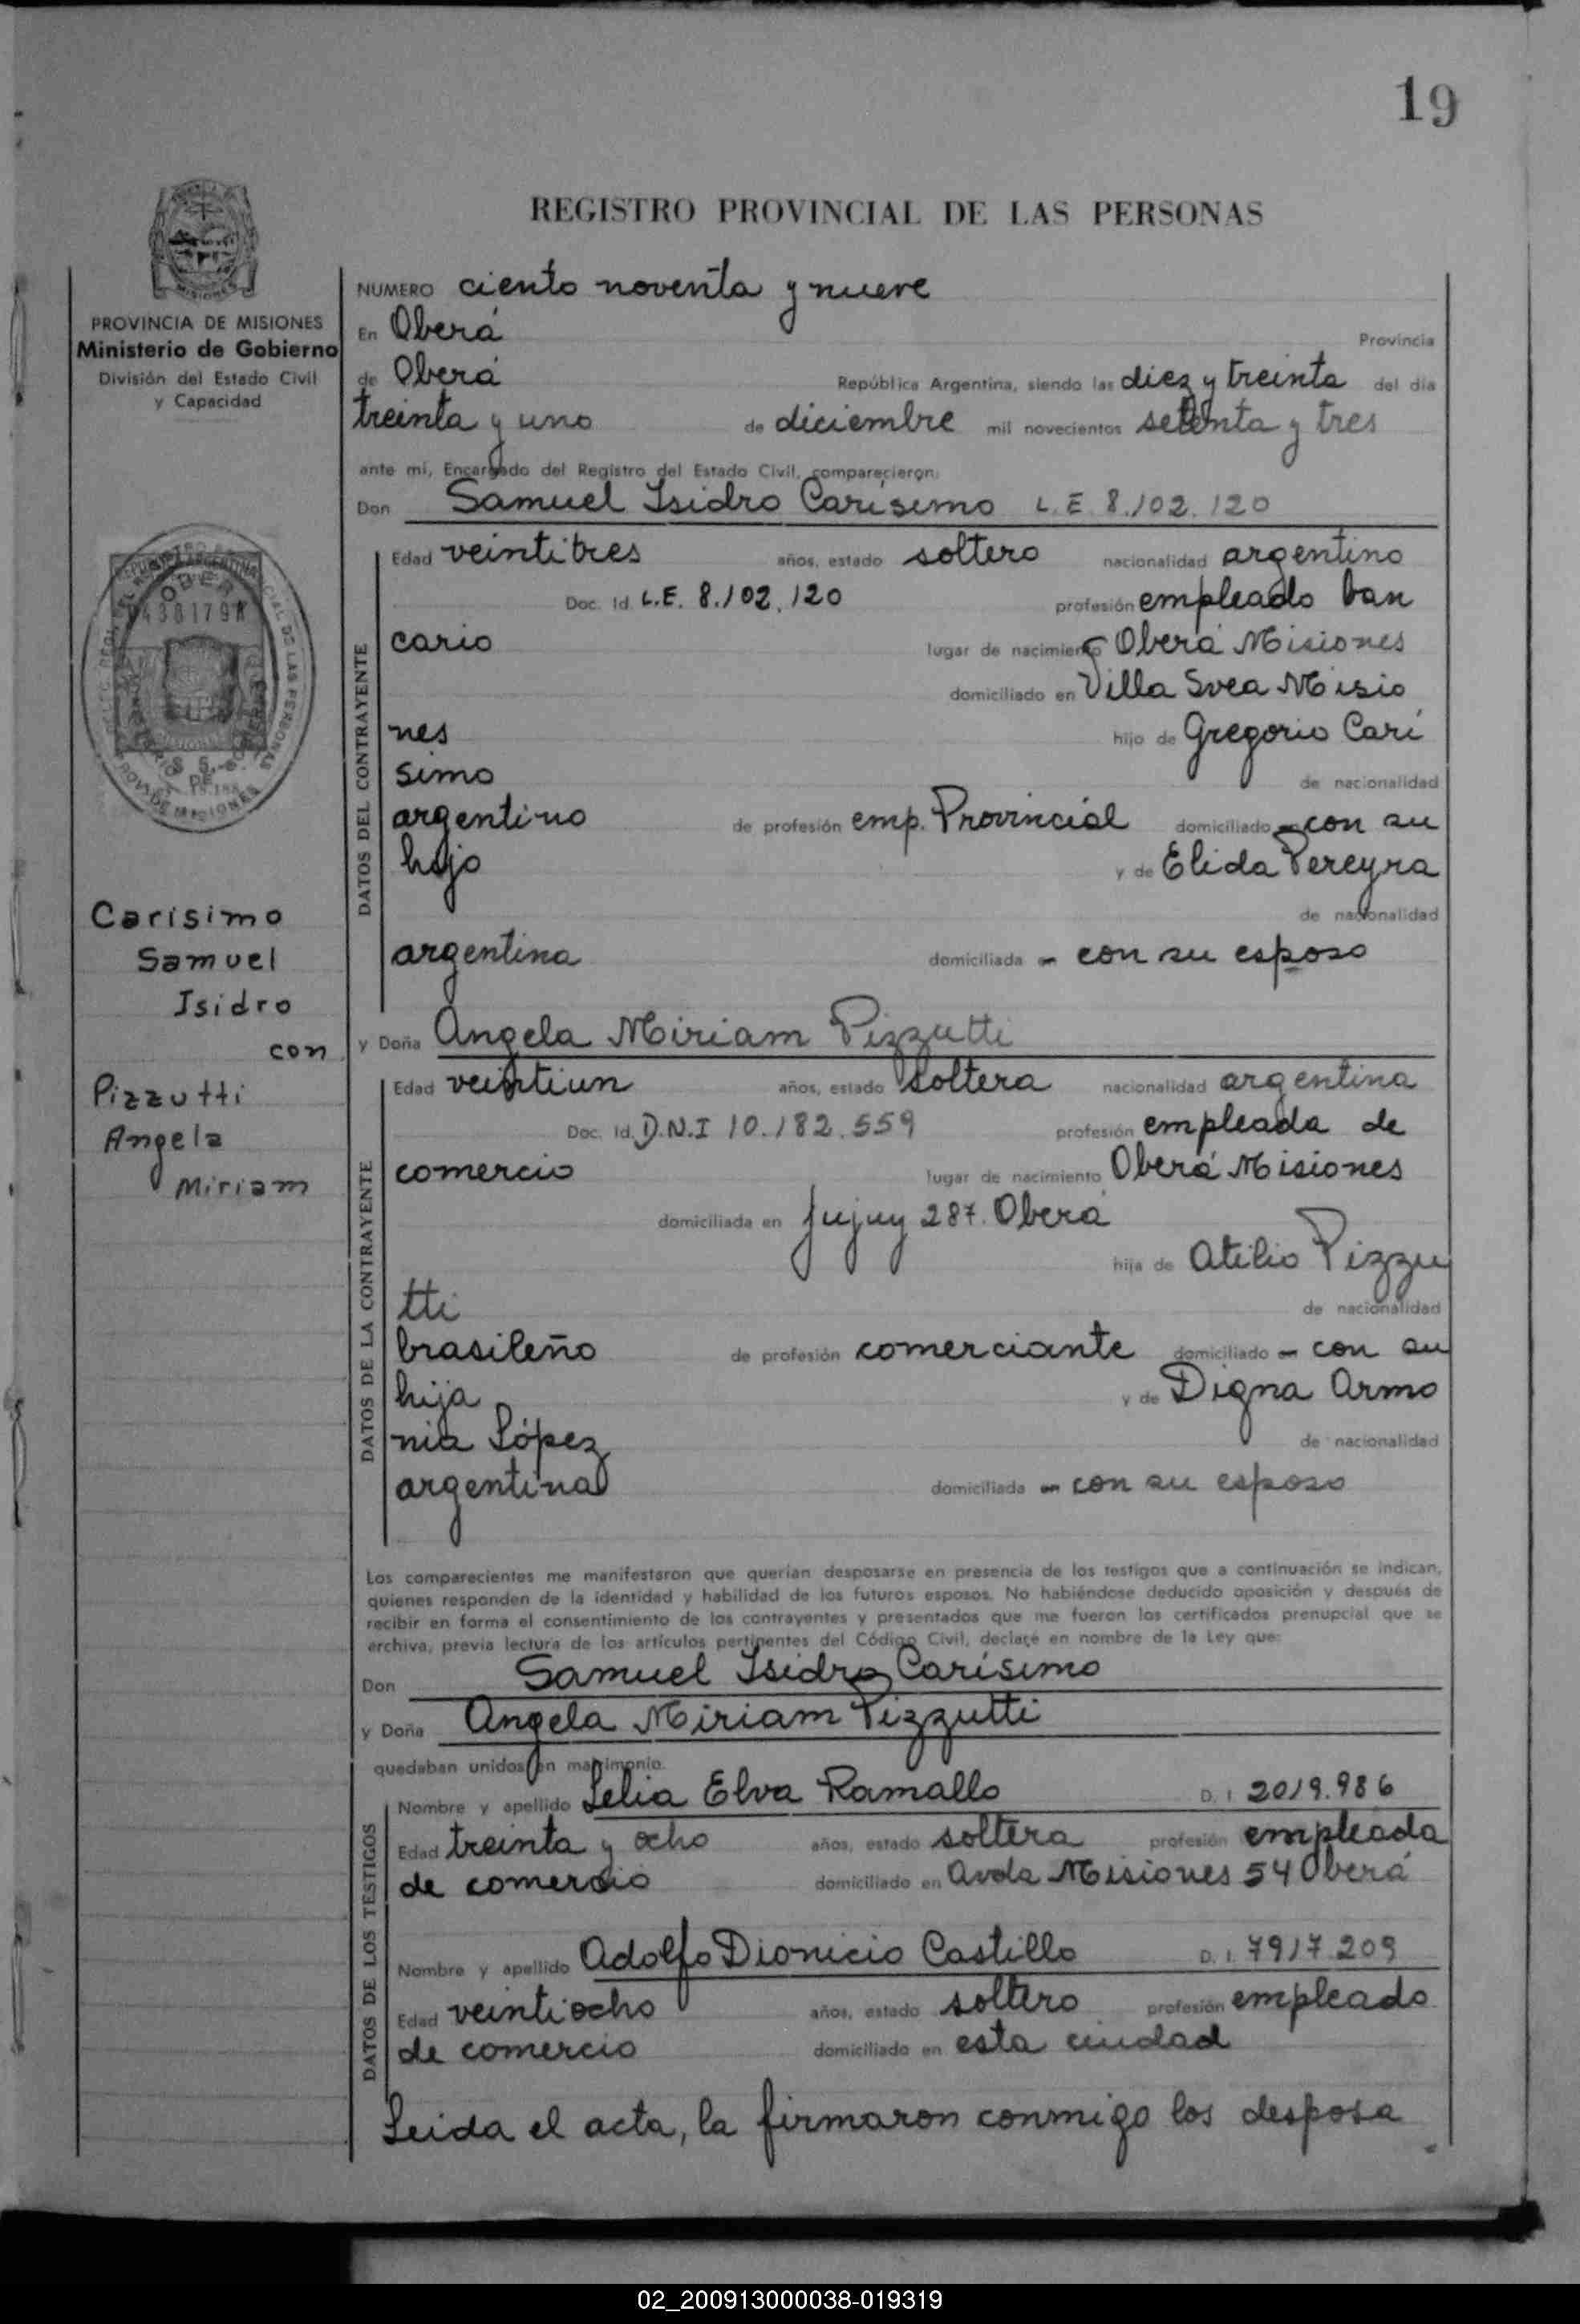 19
REGISTRO PROVINCIAL DE LAS PERSONAS
PROVINCIA DE MISIONES
Ministerio de Gobierno
División del Estado Civil
y Capacidad
Carisimo
Samuel
Isidro
con
Pizzutti
Angela
Miriam
NUMERO ciento noventa y nueve
En Oberá Provincia
de Oberá República Argentina, siendo las diez y treinta del día
treinta y uno de diciembre mil novecientos setenta y tres
ante mí, Encargado del Registro del Estado Civil, comparecieron:
Don Samuel Isidro Carísimo L.E. 8.102.120
DATOS DEL CONTRAYENTE
Edad veintitres años, estado soltero nacionalidad argentino
Doc. Id. L.E. 8.102.120 profesión empleado ban
cario lugar de nacimiento Oberá Misiones
domiciliado en Villa Svea Misio
nes hijo de Gregorio Carí
simo de nacionalidad
argentino de profesión emp. Provincial domiciliado con su
hijo y de Elida Pereyra
de nacionalidad
argentina domiciliada con su esposo
y Doña Angela Miriam Pizzutti
DATOS DE LA CONTRAYENTE
Edad veintiun años, estado soltera nacionalidad argentina
Doc. Id. D.N.I 10.182.559 profesión empleada de
comercio lugar de nacimiento Oberá Misiones
domiciliada en Jujuy 287. Oberá
hija de Atilio Pizzu
tti de nacionalidad
brasileño de profesión comerciante domiciliado con su
hija y de Digna Armo
nia López de nacionalidad
argentina domiciliada con su esposo
Los comparecientes me manifestaron que querían desposarse en presencia de los testigos que a continuación se indican,
quienes responden de la identidad y habilidad de los futuros esposos. No habiéndose deducido oposición y después de
recibir en forma el consentimiento de los contrayentes y presentados que me fueron los certificados prenupcial que se
archiva, previa lectura de los artículos pertinentes del Código Civil, declaré en nombre de la Ley que:
Don Samuel Isidro Carísimo
y Doña Angela Miriam Pizzutti
quedaban unidos en matrimonio.
DATOS DE LOS TESTIGOS
Nombre y apellido Lelia Elva Ramallo D. I. 2019.986
Edad treinta y ocho años, estado soltera profesión empleada
de comercio domiciliado en Avda Misiones 54 Oberá
Nombre y apellido Adolfo Dionicio Castillo D. I. 7917.209
Edad veintiocho años, estado soltero profesión empleado
de comercio domiciliado en esta ciudad
Leida el acta, la firmaron conmigo los desposa
02_200913000038-019319